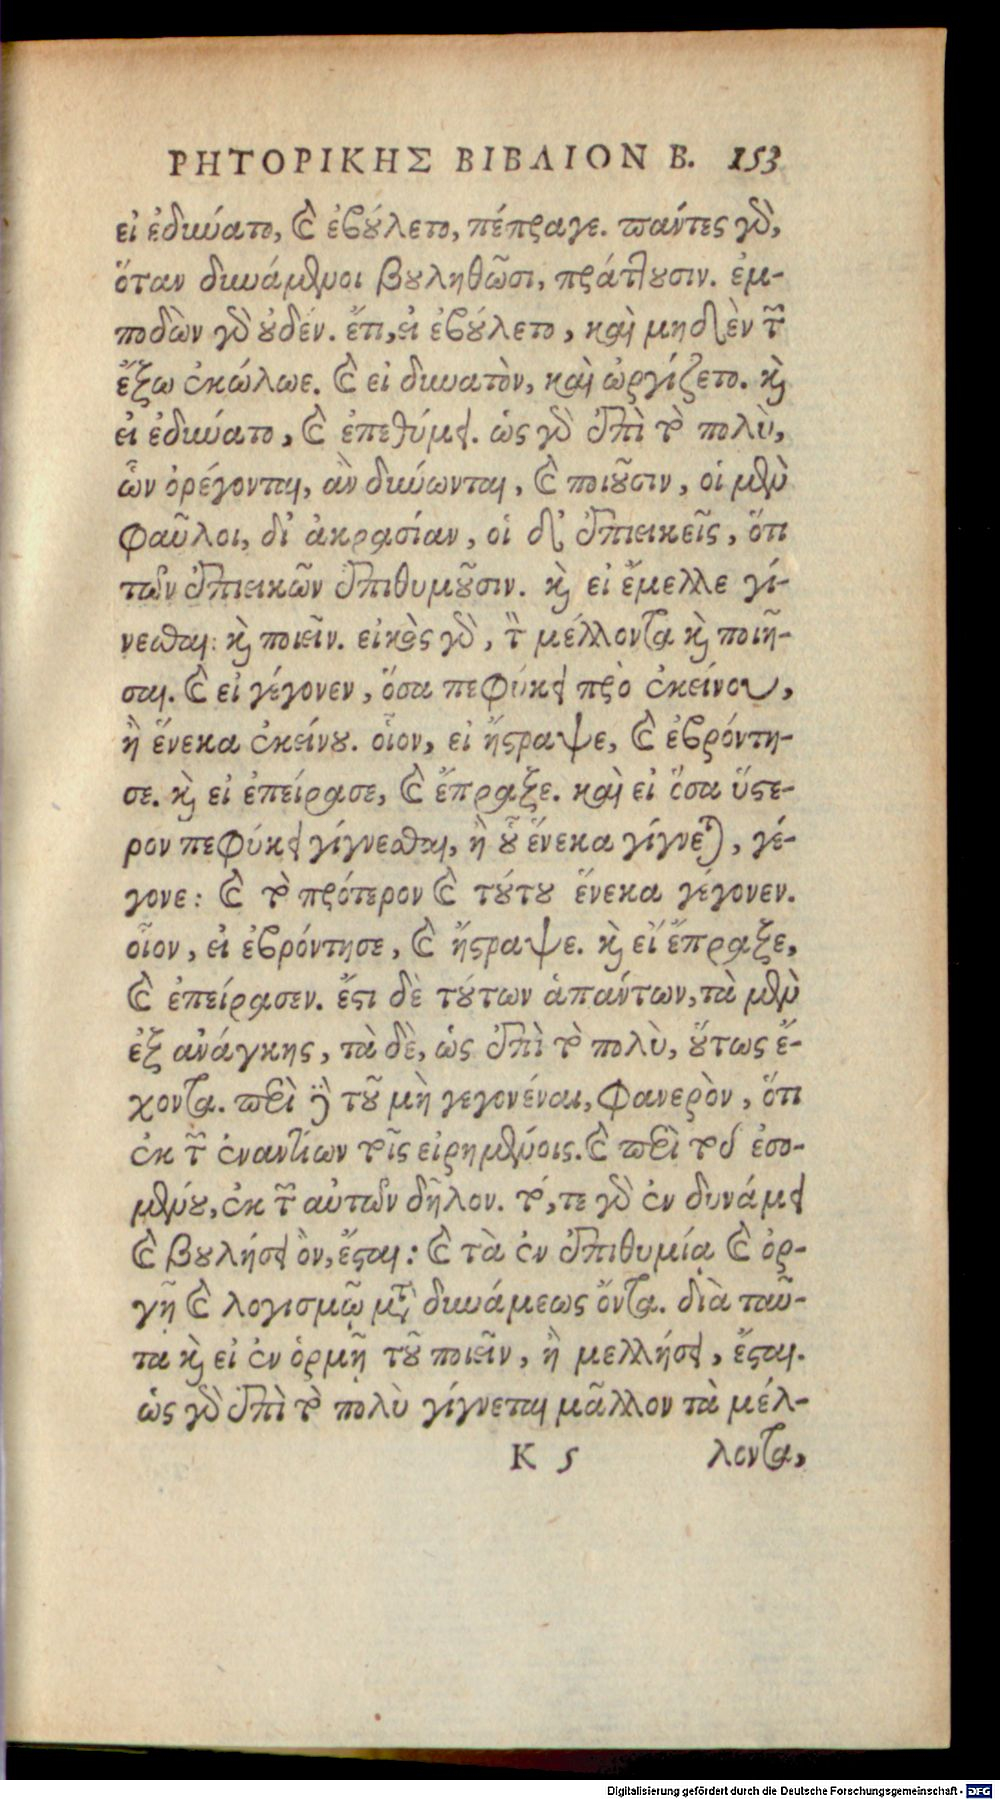 ΡΗΤΟΡΙΚΗΣ ΒΙΒΛΙΟΝ Β. 153
εἰ ἐδύνατο, καὶ ἐβούλετο, πέπραγε. πάντες γὰρ,
ὅταν δυνάμενοι βουληθῶσι, πράττουσιν. ἐμ-
ποδὼν γὰρ οὐδέν. ἔτι, εἰ ἐβούλετο, καὶ μηδὲν τῶν
ἔξω ἐκώλυε. καὶ εἰ δυνατὸν, καὶ ὠργίζετο. καὶ
εἰ ἐδύνατο, καὶ ἐπεθύμει. ὡς γὰρ ἐπὶ τὸ πολὺ,
ὧν ὀρέγονται, ἂν δύνωνται, καὶ ποιοῦσιν, οἱ μὲν
φαῦλοι, δι' ἀκρασίαν, οἱ δ' ἐπιεικεῖς, ὅτι
τῶν ἐπιεικῶν ἐπιθυμοῦσιν. καὶ εἰ ἔμελλε γί-
νεσθαι: καὶ ποιεῖν. εἰκὸς γὰρ, τὸν μέλλοντα καὶ ποιῆ-
σαι. καὶ εἰ γέγονεν, ὅσα πεφύκει πρὸ ἐκείνου,
ἢ ἕνεκα ἐκείνου. οἷον, εἰ ἤστραψε, καὶ ἐβρόντη-
σε. καὶ εἰ ἐπείρασε, καὶ ἔπραξε. καὶ εἰ ὅσα ὕστε-
ρον πεφύκει γίγνεσθαι, ἢ οὗ ἕνεκα γίγνεται, γέ-
γονε: καὶ τὸ πρότερον καὶ τούτου ἕνεκα γέγονεν.
οἷον, εἰ ἐβρόντησε, καὶ ἤστραψε. καὶ εἰ ἔπραξε,
καὶ ἐπείρασεν. ἔστι δὲ τούτων ἁπάντων, τὰ μὲν
ἐξ ἀνάγκης, τὰ δὲ, ὡς ἐπὶ τὸ πολὺ, οὕτως ἔ-
χοντα. περὶ δὲ τοῦ μὴ γεγονέναι, φανερὸν, ὅτι
ἐκ τῶν ἐναντίων τοῖς εἰρημένοις. καὶ περὶ τοῦ ἐσο-
μένου, ἐκ τῶν αὐτῶν δῆλον. τό, τε γὰρ ἐν δυνάμει
καὶ βουλήσει ὂν, ἔσται: καὶ τὰ ἐν ἐπιθυμίᾳ καὶ ὀρ-
γῇ καὶ λογισμῷ μετὰ δυνάμεως ὄντα. διὰ ταῦ-
τα καὶ εἰ ἐν ὁρμῇ τοῦ ποιεῖν, ἢ μελλήσει, ἔσται.
ὡς γὰρ ἐπὶ τὸ πολὺ γίγνεται μᾶλλον τὰ μέλ-
K 5 λοντα,
Digitalisierung gefördert durch die Deutsche Forschungsgemeinschaft - DFG